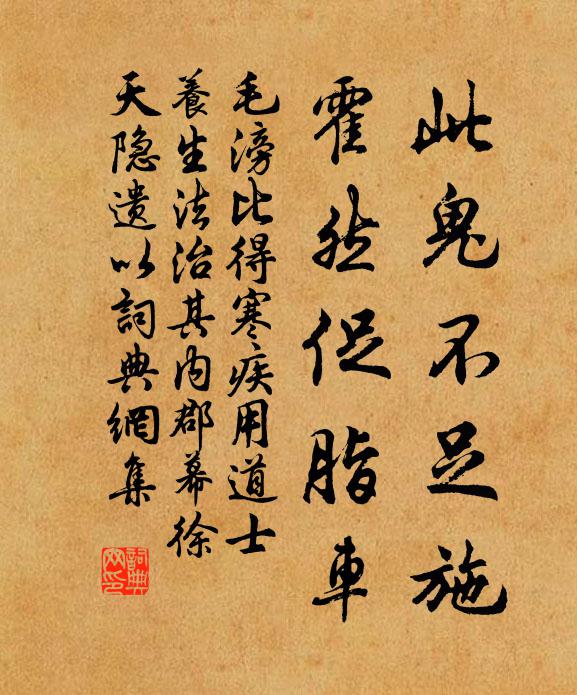 此鬼不足施
霍然促脂車
毛滂比得寒疾用道士
養生法治其内郡幕徐
天隐遺以詞典網集
詞典
网印